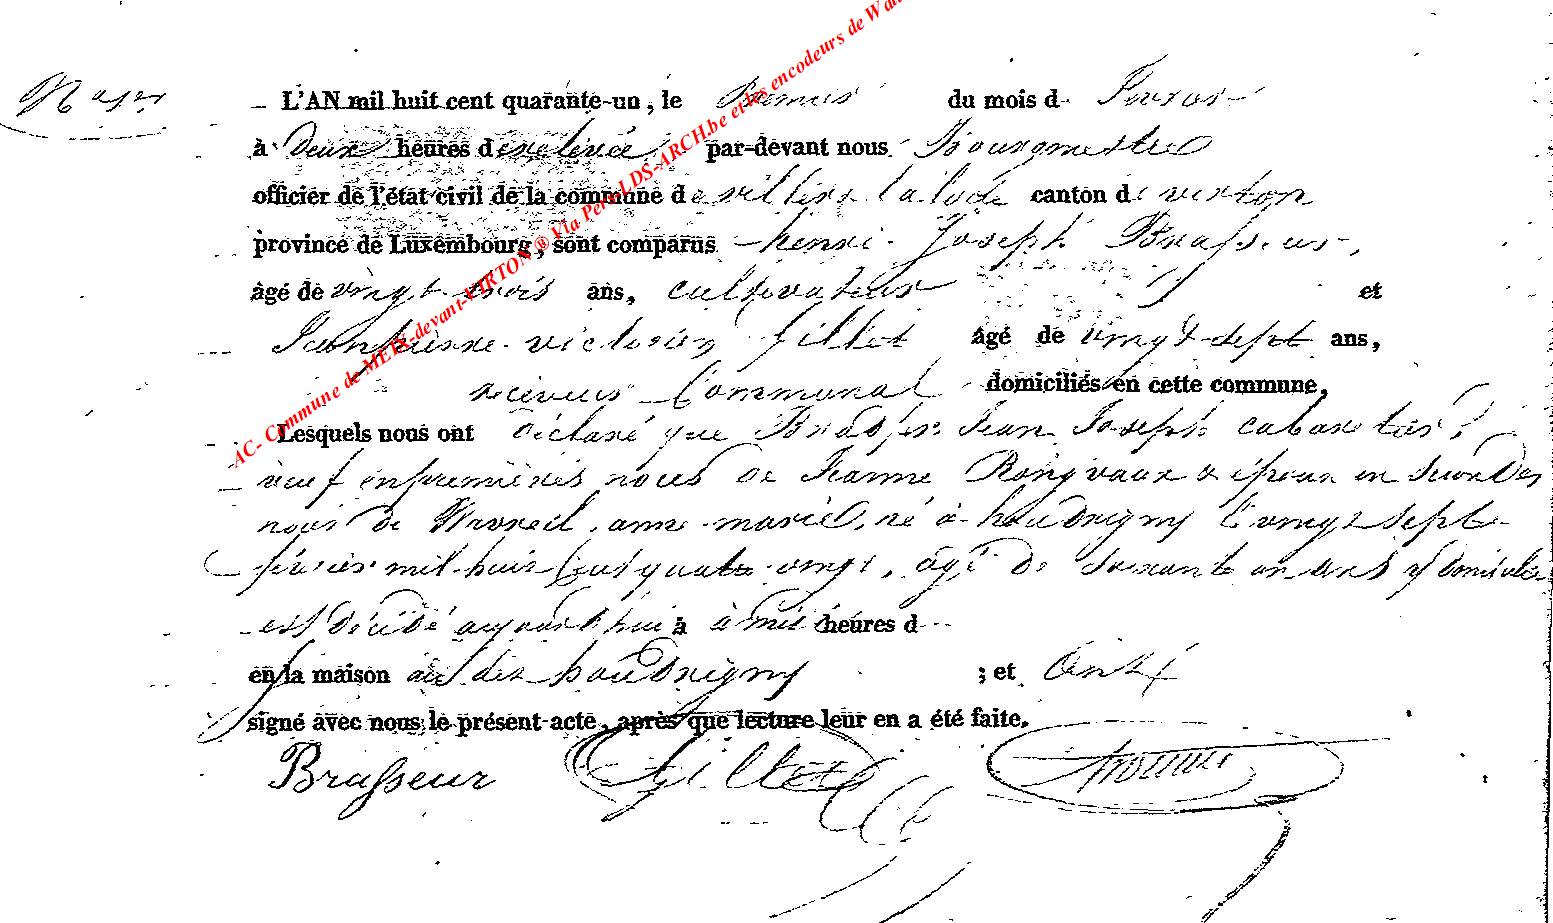 L'AN mil huit cent quarante-un, le Premier du mois de Fevrier
à Deux heures de relevée par-devant nous Bourgmestre
officier de l'état civil de la commune de villers la loue canton de virton
province de Luxembourg, sont comparus henri Joseph Brasseur,
âgé de vingt trois ans, cultivateur et
Jean pierre victorien Gillet âgé de vingt-sept ans,
receveur Communal domiciliés en cette commune,
Lesquels nous ont déclaré que Jean Joseph cabaretier,
veuf en premières noces de Jeanne Rongvaux & époux en secondes
noces de anne marie, né à houdrigny le vingt sept
mil huit cent quatre vingt, âgé de soixante un ans y domicilié
est décédé aujourd'hui à heures d
en la maison houdrigny ; et ont
signé avec nous le présent acte, après que lecture leur en a été faite.
Brasseur Gillet
AC- Commune de MEIX-devant-VIRTON ® Via Pers LDS-ARCH.be et les encodeurs de